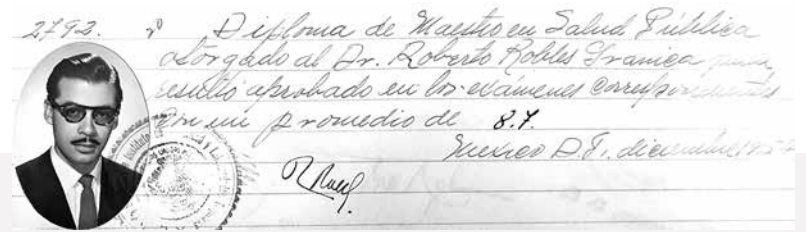 2792.
Diploma de Maestro en Salud Pública
otorgado al Dr. Roberto Robles Granica quien
resultó aprobado en los exámenes correspondientes
con un promedio de 8.7.
México D.F. diciembre